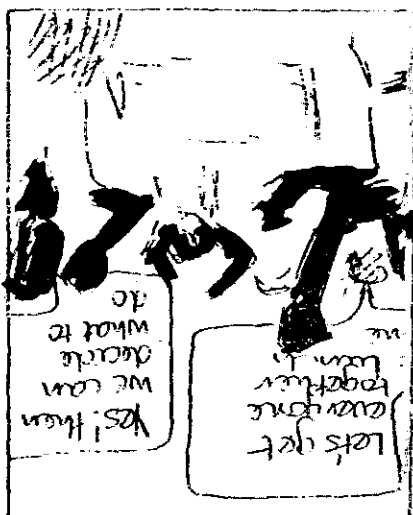 Let's get
everyone
together
Yes! then
we can
decide
what to
do